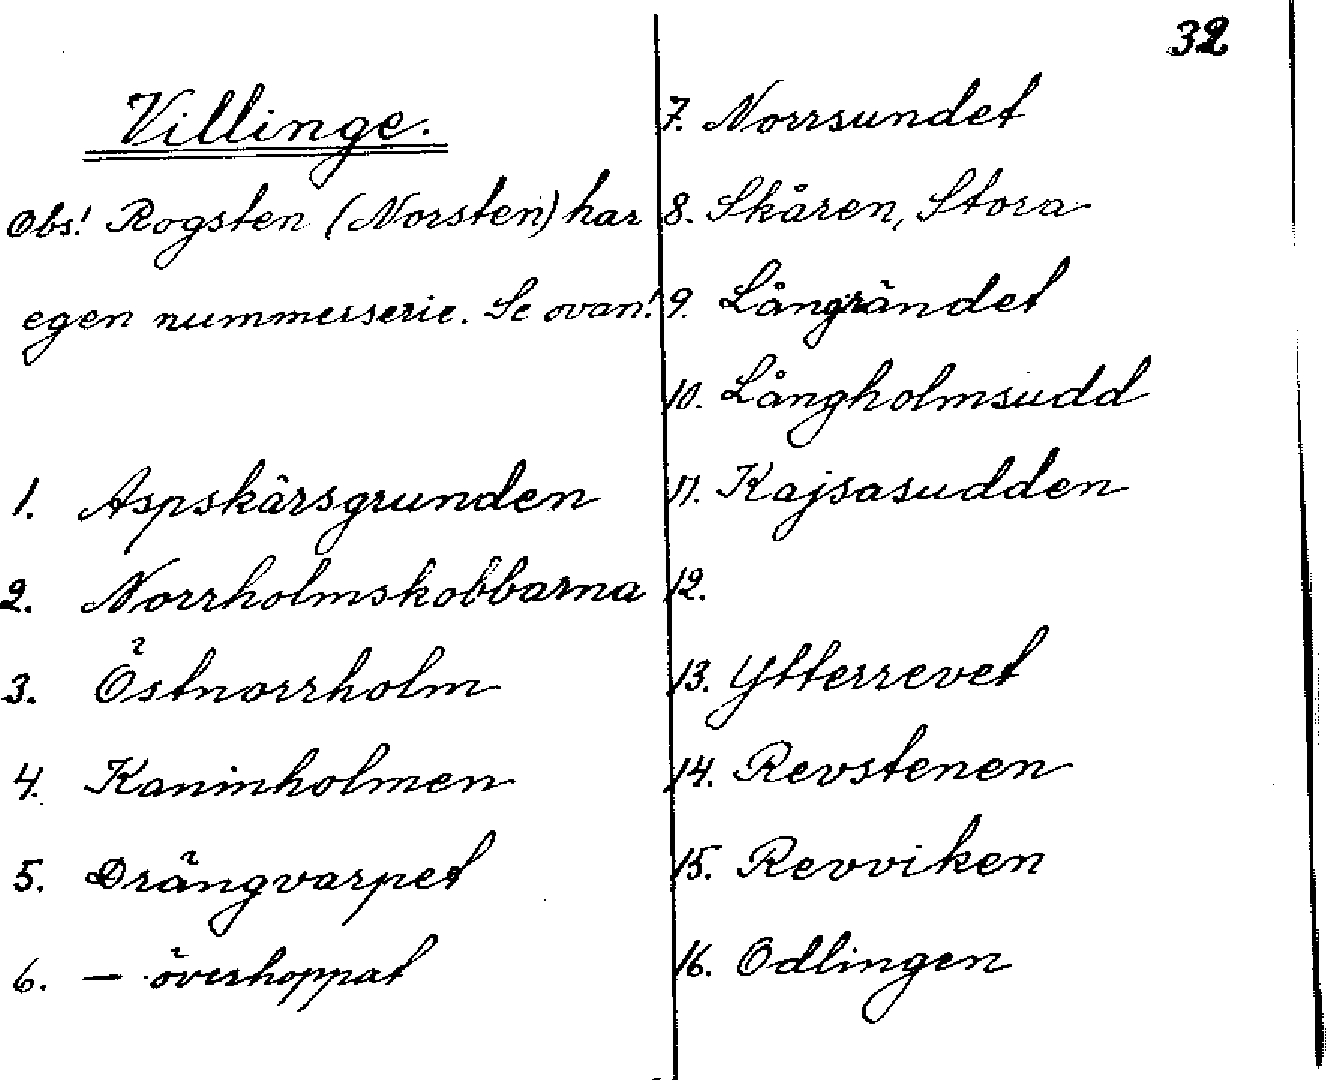 32
Villinge.
Obs! Rogsten (Norsten) har
egen nummerserie. Se ovan!
1. Aspskärsgrunden
2. Norrholmskobbarna
3. Östnorrholm
4. Kaninholmen
5. Drängvarpet
6. — överhoppat
7. Norrsundet
8. Skåren, Stora
9. Långrändet
10. Långholmsudd
11. Kajsasudden
12.
13. Ytterrevet
14. Revstenen
15. Revviken
16. Odlingen